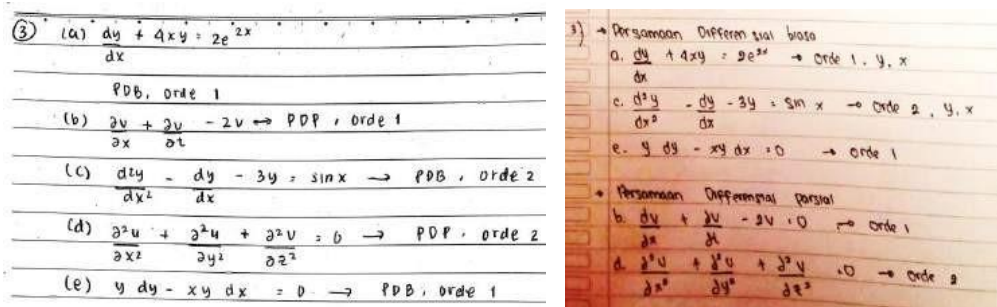 ③ (a) dy/dx + 4xy = 2e^2x
PDB, orde 1
(b) ∂v/∂x + ∂v/∂t - 2v ↔ PDP, orde 1
(c) d²y/dx² - dy/dx - 3y = sin x → PDB, orde 2
(d) ∂²u/∂x² + ∂²u/∂y² + ∂²v/∂z² = 0 → PDP, orde 2
(e) y dy - xy dx = 0 → PDB, orde 1
3) → Persamaan Differensial biasa
a. dy/dx + 4xy = 2e^2x → orde 1, y, x
c. d²y/dx² - dy/dx - 3y = sin x → orde 2, y, x
e. y dy - xy dx = 0 → orde 1
→ Persamaan Differensial parsial
b. ∂v/∂x + ∂v/∂t - 2v = 0 → orde 1
d. ∂²u/∂x² + ∂²u/∂y² + ∂²v/∂z² = 0 → orde 2